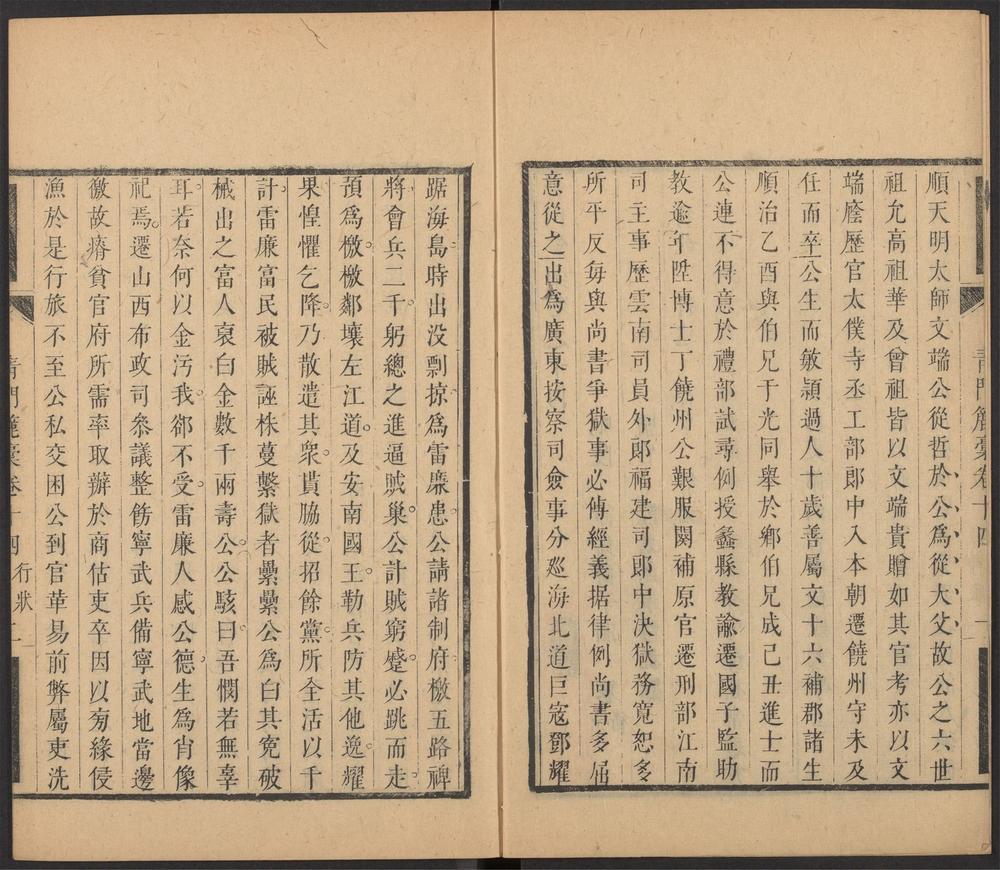 順天明太師文端公從哲於公爲從大父故公之六世
祖允高祖華及曾祖皆以文端貴贈如其官考亦以文
端廕歷官太僕寺丞工部郎中入本朝遷饒州守未及
任而卒公生而敏頴過人十歲善屬文十六補郡諸生
順治乙酉與伯兄于光同舉於鄉伯兄成己丑進士而
公連不得意於禮部試尋例授蠡縣教諭遷國子監助
教逾年陞博士丁饒州公艱服闋補原官遷刑部江南
司主事歷雲南司員外郎福建司郎中決獄務寬恕多
所平反每與尚書爭獄事必傅經義据律例尚書多屈
意從之出爲廣東按察司僉事分廵海北道巨寇鄧耀
踞海島時出没剽掠爲雷廉患公請諸制府檄五路禆
將會兵二千躬總之進逼賊巢公計賊窮蹙必跳而走
頇爲檄檄鄰壤左江道及安南國王勒兵防其他逸耀
果惶懼乞降乃散遣其衆貰脇從招餘黨所全活以千
計雷廉富民被賊誣株蔓繫獄者纍纍公爲白其冤破
械出之富人裒白金數千兩壽公公駭曰吾憫若無辜
耳若奈何以金污我郤不受雷廉人感公德生爲肖像
祀焉遷山西布政司叅議整飭寧武兵備寧武地當邊
徼故瘠貧官府所需率取辦於商估吏卒因以旁緣侵
漁於是行旅不至公私交困公到官革易前弊屬吏洗
青門簏稾卷十四 行狀 二